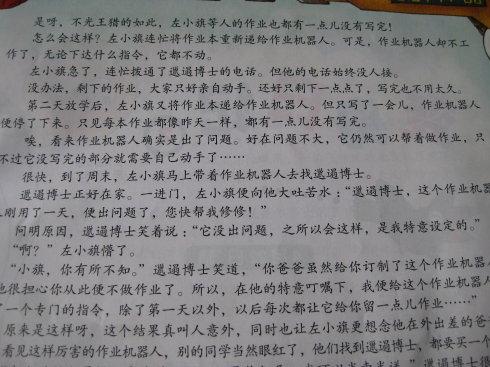 是呀，不光王猎的如此，左小旗等人的作业也都有一点儿没有写完！
怎么会这样？左小旗连忙将作业本重新递给作业机器人。可是，作业机器人却不工
作了，无论下达什么指令，它都不动。
左小旗急了，连忙拨通了邋遢博士的电话。但他的电话始终没人接。
没办法，剩下的作业，大家只好亲自动手。还好只剩下一点点了，写完也不用太久。
第二天放学后，左小旗又将作业本递给作业机器人。但只写了一会儿，作业机器人
便停了下来。只见每本作业都像昨天一样，都有一点儿没有写完。
唉，看来作业机器人确实是出了问题。好在问题不大，它仍然可以帮着做作业，只
不过它没写完的部分就需要自己动手了……
很快，到了周末，左小旗马上带着作业机器人去找邋遢博士。
邋遢博士正好在家。一进门，左小旗便向他大吐苦水：“邋遢博士，这个作业机器
人刚用了一天，便出问题了，您快帮我修修！”
问明原因，邋遢博士笑着说：“它没出问题，之所以会这样，是我特意设定的。”
“啊？”左小旗懵了。
“小旗，你有所不知。”邋遢博士笑道，“你爸爸虽然给你订制了这个作业机器人
也很担心你从此便不做作业了。所以，在他的特意叮嘱下，我便给这个作业机器人
了一个专门的指令，除了第一天以外，以后每次都让它给你留一点儿作业……”
原来是这样呀，这个结果真叫人意外，同时也让左小旗更想念他在外出差的爸
看见这样厉害的作业机器人，别的同学当然眼红了，他们找到邋遢博士，都要买一个